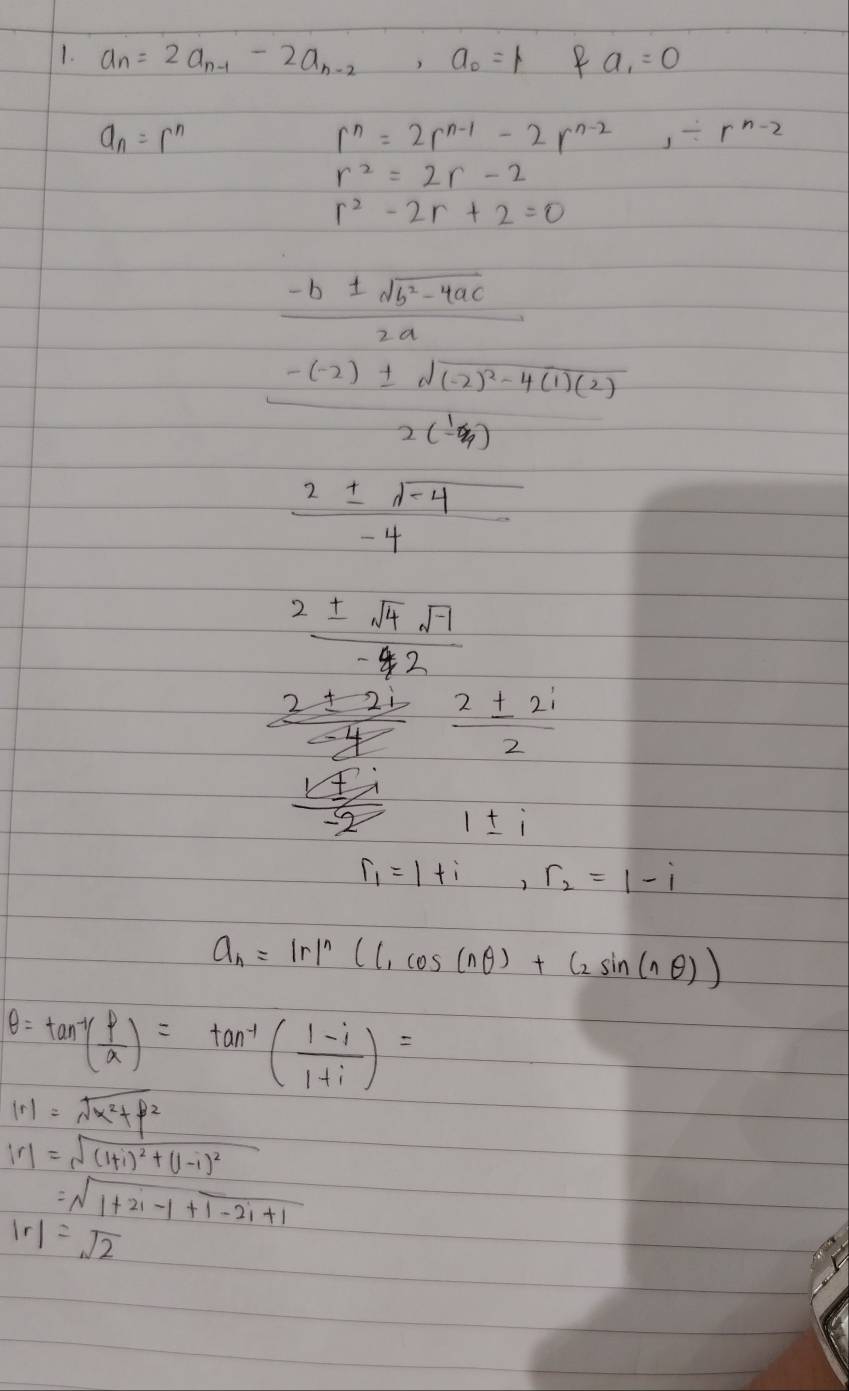 1. aₙ = 2aₙ₋₁ - 2aₙ₋₂ , a₀ = 1 & a₁ = 0
aₙ = rⁿ rⁿ = 2rⁿ⁻¹ - 2rⁿ⁻² , ÷ rⁿ⁻²
r² = 2r - 2
r² - 2r + 2 = 0
-b ± √b² - 4ac
2a
-(-2) ± √(-2)² - 4(1)(2)
2(1)
2 ± √-4
-4
2 ± √4 √-1
-2
2 ± 2i 2 ± 2i
-4 2
1 ± i
-2 1 ± i
r₁ = 1 + i , r₂ = 1 - i
aₙ = |r|ⁿ (C₁ cos (nθ) + C₂ sin (nθ))
θ = tan⁻¹(β/α) = tan⁻¹ (1 - i / 1 + i) =
|r| = √α² + β²
|r| = √(1+i)² + (1-i)²
= √1 + 2i - 1 + 1 - 2i + 1
|r| = √2